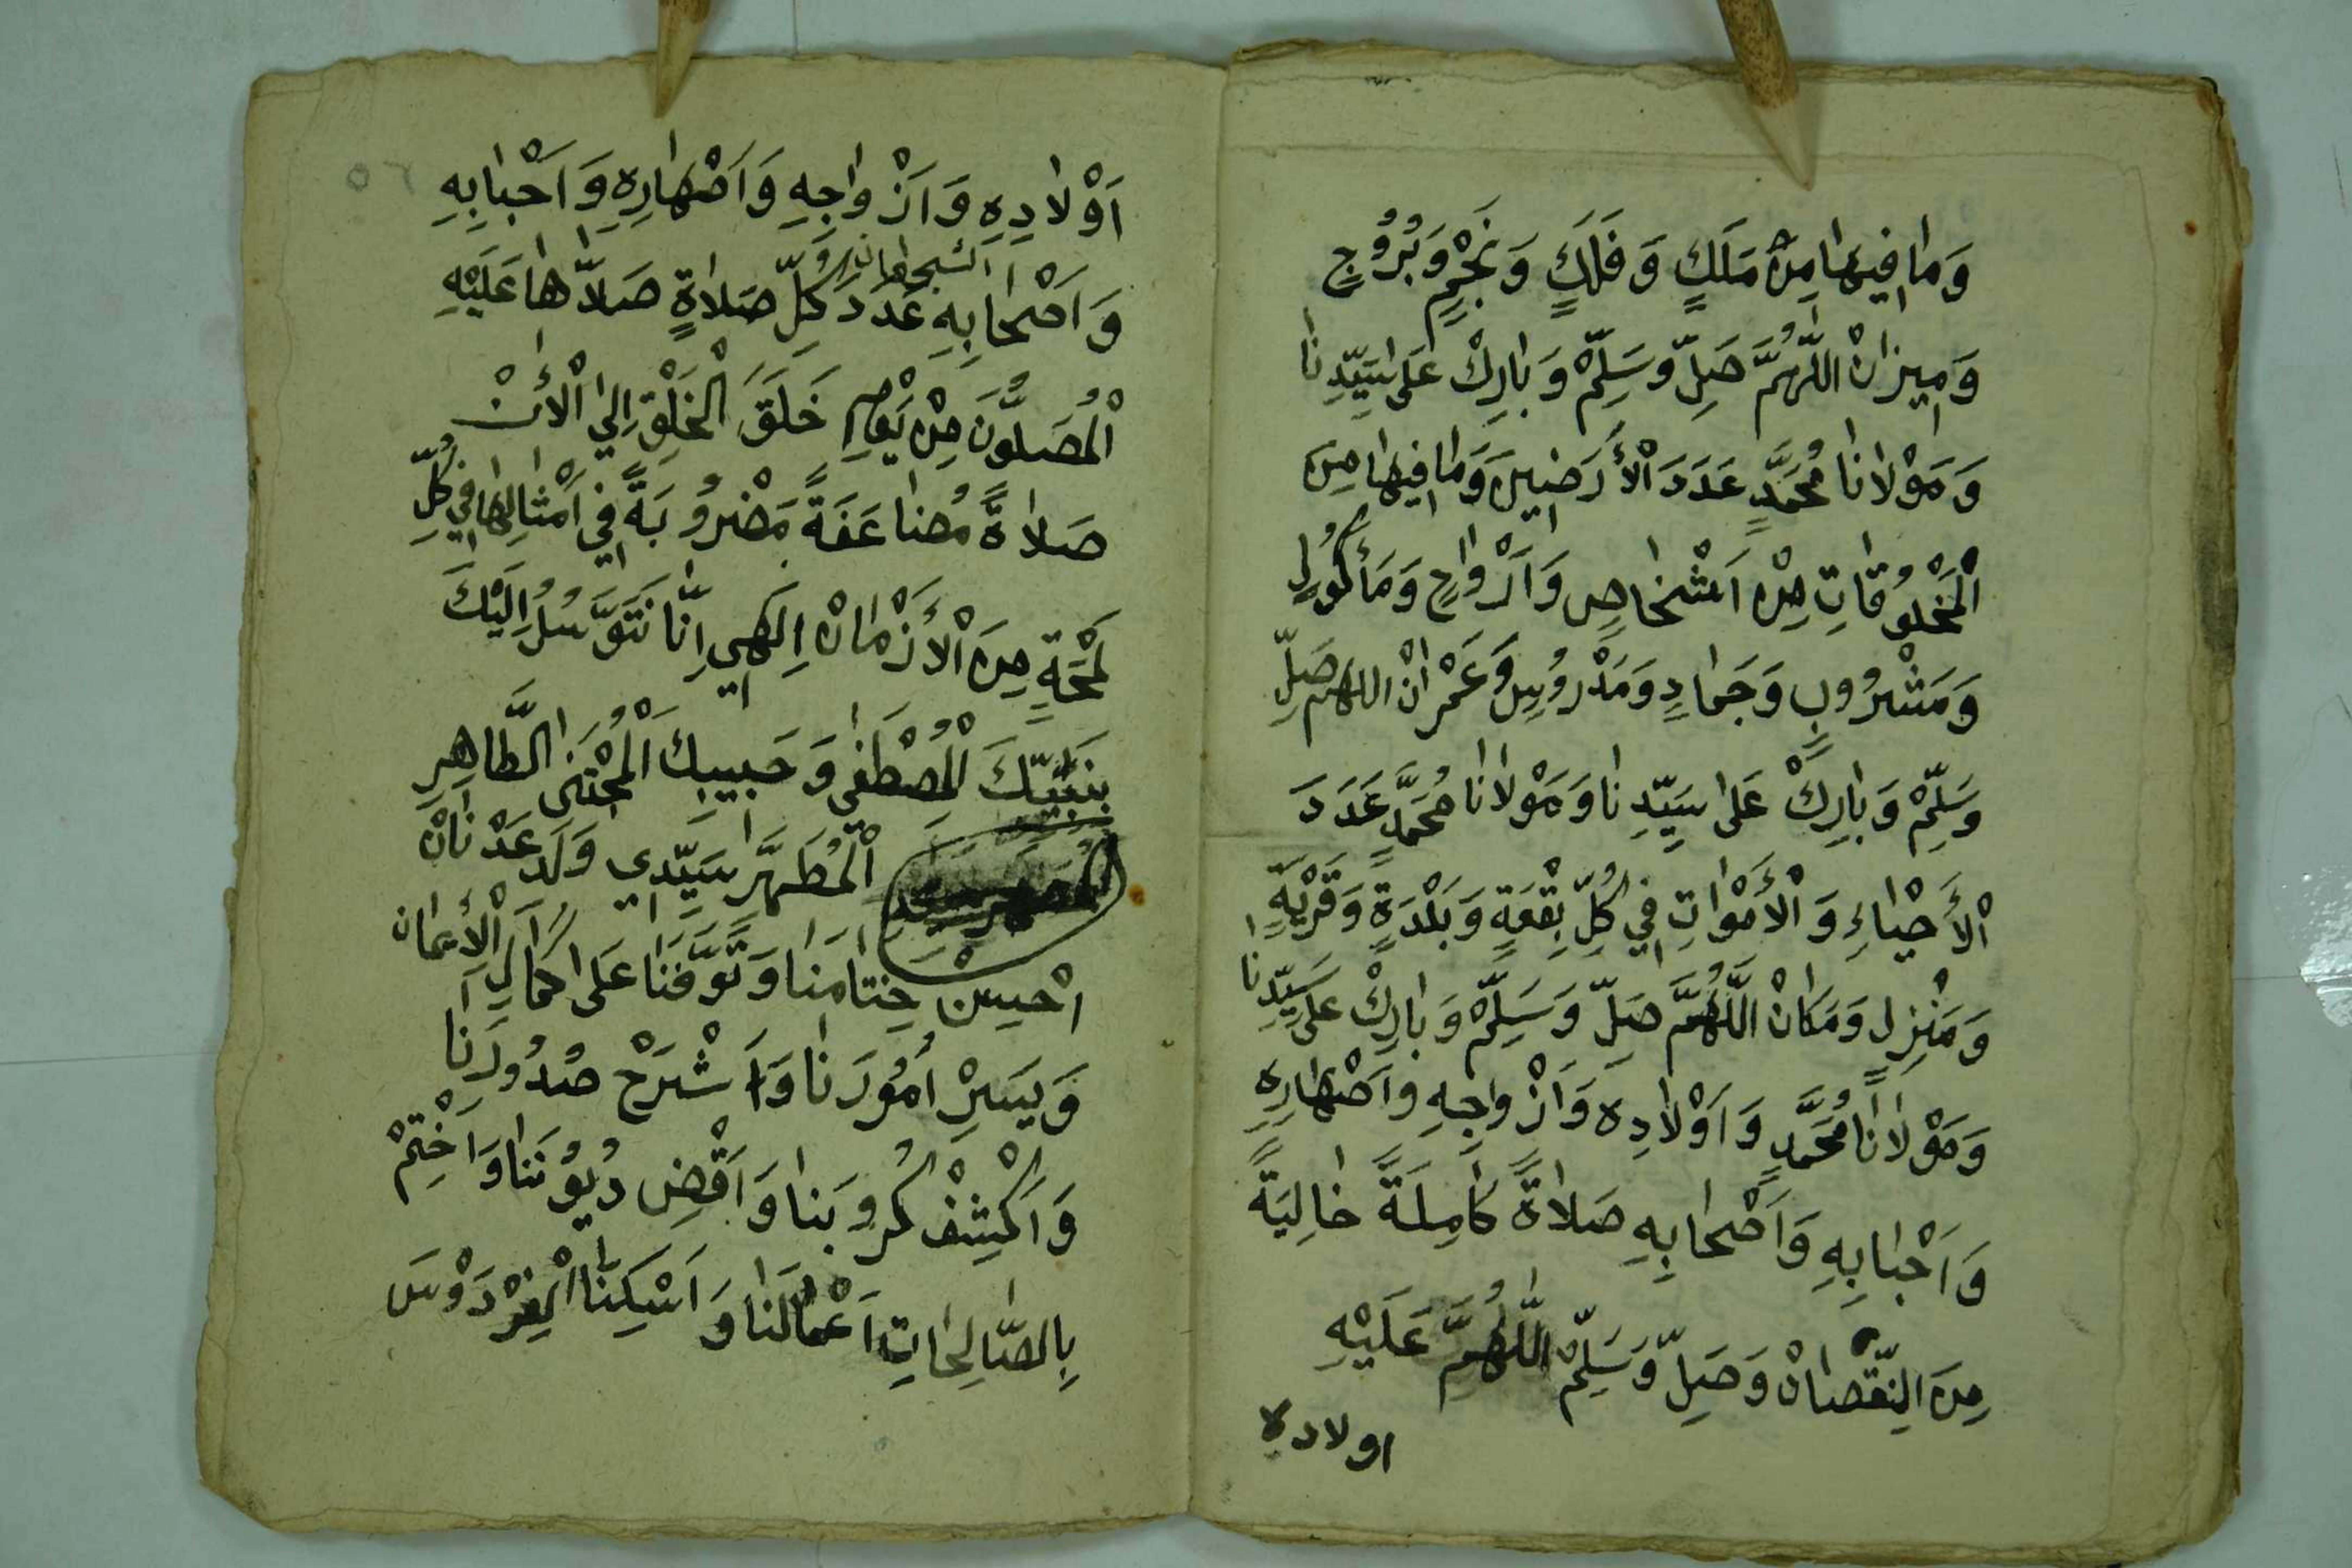 وَمَا فِيهَا مِنْ مَلَكٍ وَفَلَكٍ وَنَجْمٍ وَبُرُوجٍ
وَمِيزَانْ اللّٰهُمَّ صَلِّ وَسَلِّمْ وَبَارِكْ عَلَى سَيِّدِنَا
وَمَوْلَانَا مُحَمَّدٍ عَدَدَ الْأَرَضِينَ وَمَا فِيهَا مِنَ
الْمَخْلُوقَاتِ مِنْ اَشْخَاصٍ وَاَرْوَاحٍ وَمَأْكُولٍ
وَمَشْرُوبٍ وَجَمَادٍ وَمَدْرُوسٍ وَعَمْرَانْ اللهم صَلِّ
وَسَلِّمْ وَبَارِكْ عَلَى سَيِّدِنَا وَمَوْلَانَا مُحَمَّدٍ عَدَدَ
الْأَحْيَاءِ وَالْأَمْوَاتِ فِي كُلِّ بِقْعَةٍ وَبَلْدَةٍ وَقَرْيَةٍ
وَمَنْزِلٍ وَمَكَانْ اللَّهُمَّ صَلِّ وَسَلِّمْ وَبَارِكْ عَلَى سَيِّدِنَا
وَمَوْلَانَا مُحَمَّدٍ وَاَوْلَادِهِ وَاَزْوَاجِهِ وَاَصْهَارِهِ
وَاَحْبَابِهِ وَاَصْحَابِهِ صَلَاةً كَامِلَةً خَالِيَةً
مِنَ النِّقْصَانْ وَصَلِّ وَسَلِّمْ اللَّهُمَّ عَلَيْهِ
اولاده
٥٦
اَوْلَادِهِ وَاَزْوَاجِهِ وَاَصْهَارِهِ وَاَحْبَابِهِ
وَاَصْحَابِهِ عَدَدَ كُلِّ صَلَاةٍ صَلَّاهَا عَلَيْهِ
الْمُصَلُّونَ مِنْ يَوْمِ خَلَقَ الْخَلْقِ اِلَى الْأَنْ
صَلَاةً مُضَاعَفَةً مَضْرُوبَةً فِي اَمْثَالِهَا فِي كُلِّ
لَمْحَةٍ مِنَ الْأَزْمَانْ اِلَهِي اِنَّا نَتَوَسَّلُ اِلَيْكَ
بِنَبِيِّكَ الْمُصْطَفَى وَحَبِيبِكَ الْمُجْتَبَى الطَّاهِرِ
الْمُطَهَّرِ سَيِّدِي وَلَدِ عَدْنَانْ
اَحْسِنْ خِتَامَنَا وَتَوَفَّنَا عَلَى كَمَالِ الْأَيمَان
وَيَسِّرْ اُمُورَنَا وَاَشْرَحْ صُدُورَنَا
وَاَكْشِفْ كُرُوبَنَا وَاَقْضِ دُيُونَنَا وَاَخْتِمْ
بِالصَّالِحَاتِ اَعْمَالَنَا وَاَسْكِنَّا الْفِرْدَوْسَ